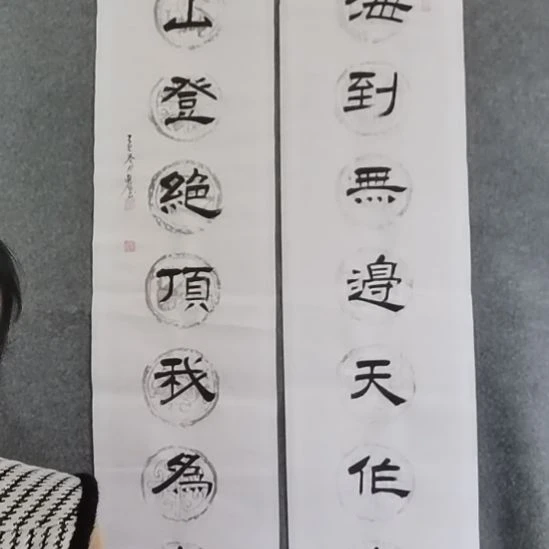 海到無邊天作
山登絕頂我為